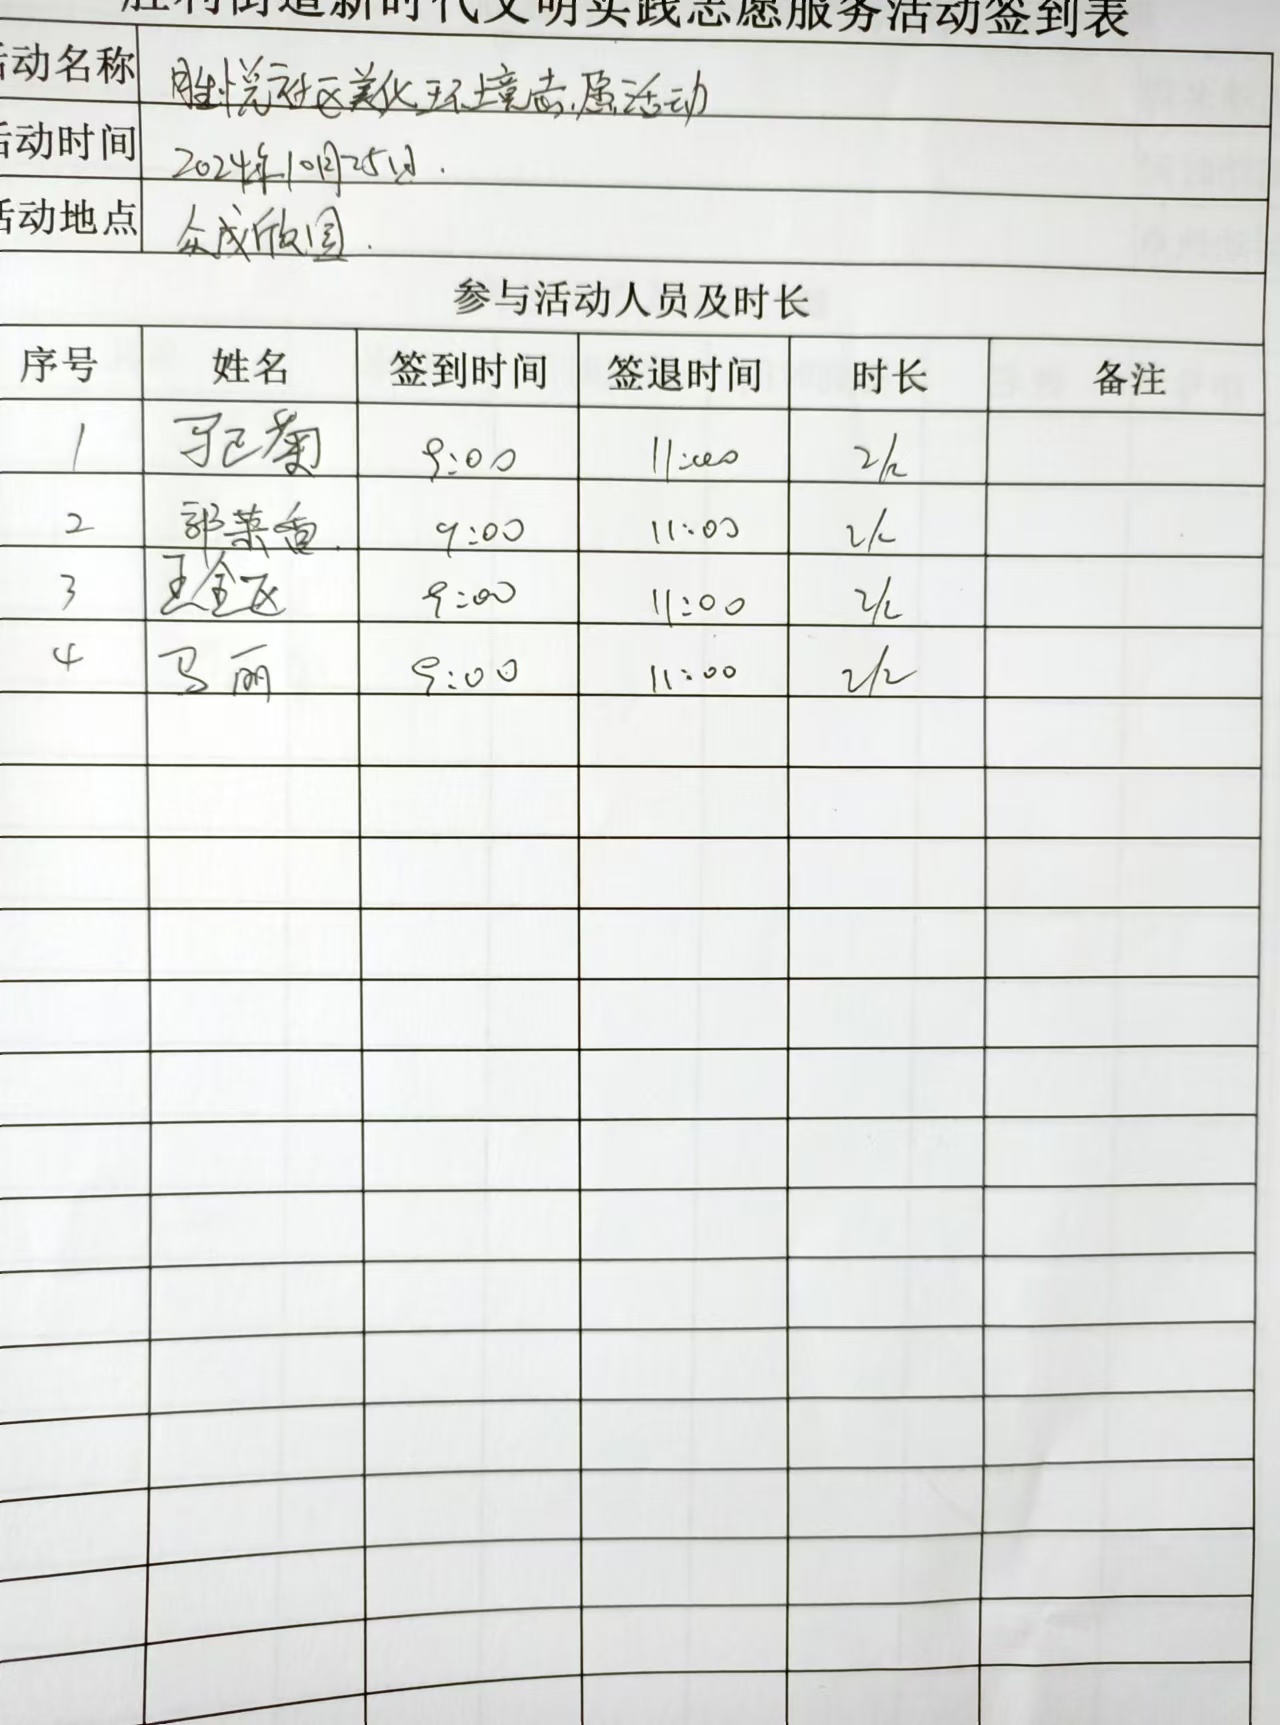 胜利街道新时代文明实践志愿服务活动签到表
活动名称 胜悦社区美化环境志愿活动
活动时间 2024年10月25日.
活动地点 众成欣园.
参与活动人员及时长
序号 姓名 签到时间 签退时间 时长 备注
1 菊 9:00 11:00 2h
2 郭荣香. 9:00 11:00 2h
3 王金 9:00 11:00 2h
4 马丽 9:00 11:00 2h